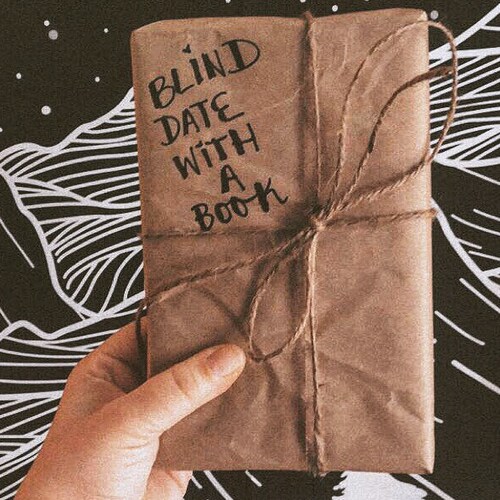 BLIND
DATE
WITH
A
BOOK